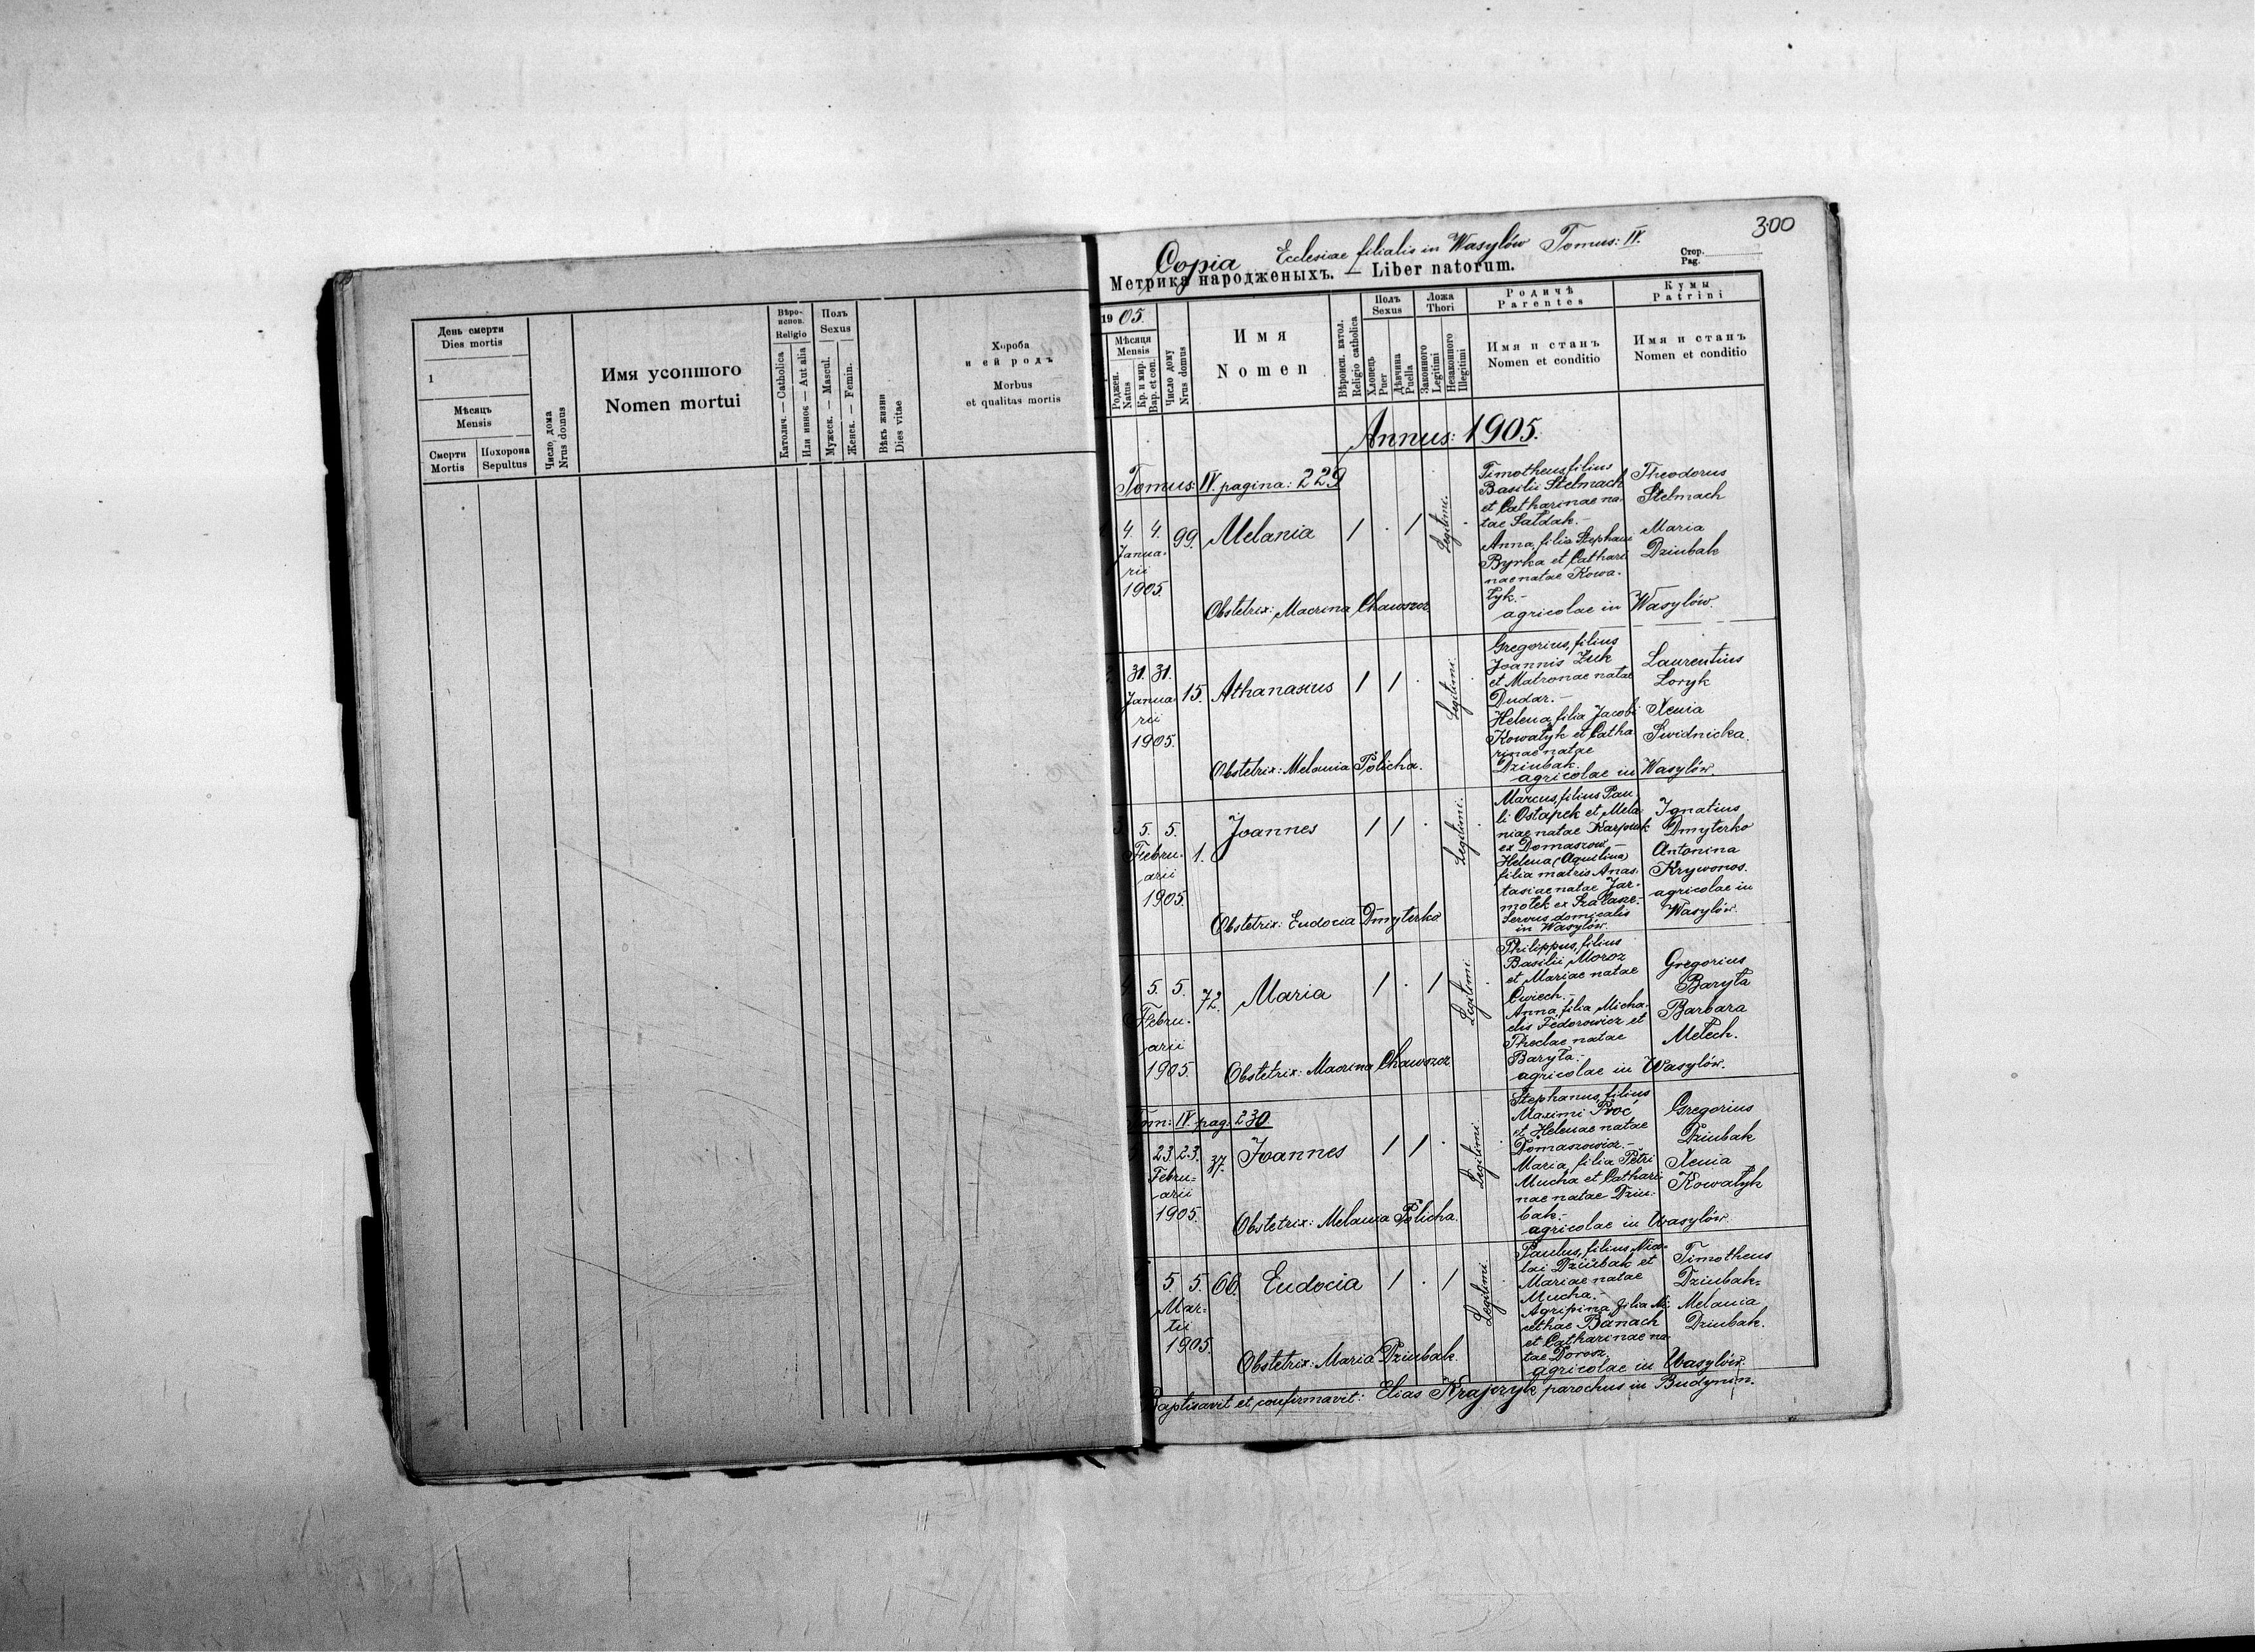 День смерти
Dies mortis
1
Мѣсяць
Mensis
Смерти
Mortis
Похорона
Sepultus
Число дома
Nrus domus
Имя усопшого
Nomen mortui
Вѣро-
испов.
Religio
Католич. — Catholica
Или инное — Aut alia
Полъ
Sexus
Мужеск. — Mascul.
Женск. — Femin.
Вѣкъ жизни
Dies vitae
Хороба
и ей родъ
Morbus
et qualitas mortis
300
Copia Ecclesiae filialis in Wasylów Tomus: IV.
Стор.
Pag.
Метрика народженыхъ. — Liber natorum.
1905.
Мѣсяця
Mensis
Роджен.
Natus
Кр. и мир.
Bap. et con.
Число дому
Nrus domus
Имя
Nomen
Вѣроисп. катол.
Religio catholica
Полъ
Sexus
Хлопець
Puer
Дѣвчина
Puella
Ложа
Thori
Законного
Legitimi
Незаконного
Illegitimi
Родичѣ
Parentes
Имя и станъ
Nomen et conditio
Кумы
Patrini
Имя и станъ
Nomen et conditio
Annus: 1905.
Tomus: IV. pagina: 229
4. 4.
Janua-
rii
1905.
99.
Melania
1 . 1
Legitimi.
Timotheus, filius
Basilii Stelmach
et Catharinae na-
tae Sałdak. -
Anna, filia Stephani
Byrka et Cathari
nae natae Kowa-
łyk. -
agricolae in Wasylów.
Theodorus
Stelmach
Maria
Dziubak
Obstetrix: Macrina Chawszcz
31. 31.
Janua
rii
1905.
15.
Athanasius
1 1 .
Legitimi.
Gregorius, filius
Joannis Żuk
et Matronae natae
Dudar. -
Helena, filia Jacobi
Kowałyk et Catha
rinae natae
Dziubak.
agricolae in Wasylów.
Laurentius
Loryk
Xenia
Swidnicka.
Obstetrix: Melania Policha.
5. 5.
Febru-
arii
1905.
1.
Joannes
1 1 .
Legitimi.
Marcus, filius Pau
li Ostapek et Mela-
niae natae Karpiuk
ex Domaszow -
Helena (Aquilina)
filia matris Anas-
tasiae natae Jar-
motek
Servus domicalis
in Wasylów.
Ignatius
Dmyterko
Antonina
Krywonos.
agricolae in
Wasylów.
Obstetrix: Eudocia Dmyterko
5. 5.
Febru-
arii
1905.
72.
Maria
1 . 1
Legitimi.
Philippus, filius
Basilii Moroz
et Mariae natae
Cwiech. -
Anna, filia Micha-
elis Fedorowicz et
Theclae natae
Baryła. -
agricolae in Wasylów.
Gregorius
Baryła
Barbara
Melech.
Obstetrix: Macrina Chawszcz
Tom: IV. pag: 230
23. 23.
Febru=
arii
1905.
37.
Joannes
1 1 .
Legitimi.
Stephanus, filius
Maximi Proć
et Helenae natae
Domaszowicz. -
Maria, filia Petri
Mucha et Cathari
nae natae Dziu-
bak. -
agricolae in Wasylów.
Gregorius
Dziubak
Xenia
Kowałyk
Obstetrix: Melania Policha.
5. 5.
Mar=
tii
1905.
66.
Eudocia
1 . 1
Legitimi.
Paulus, filius Nico-
lai Dziubak et
Mariae natae
Mucha. -
Agripina, filia Ni-
cethae Banach
et Catharinae na-
tae Dorosz.
agricolae in Wasylów.
Timotheus
Dziubak
Melania
Dziubak.
Obstetrix: Maria Dziubak.
Baptisavit et confirmavit: Elias Krajczyk parochus in Budynin.